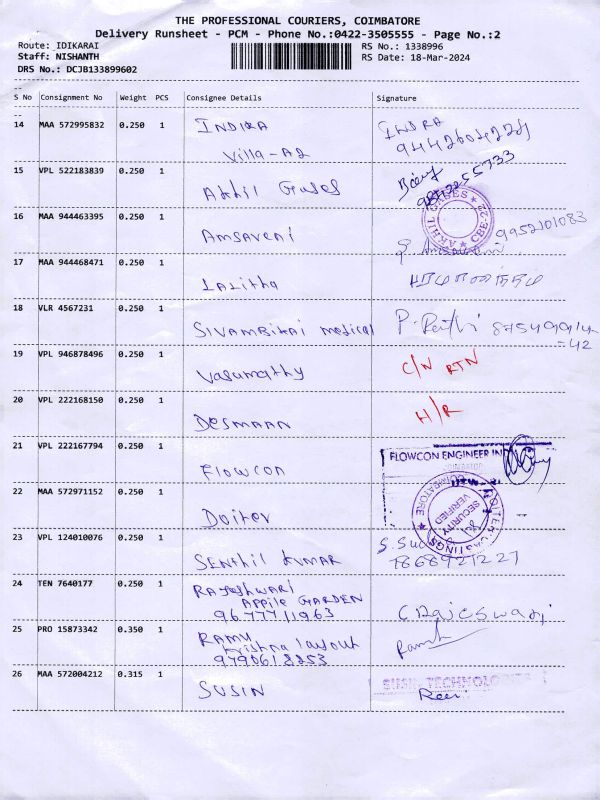 THE PROFESSIONAL COURIERS, COIMBATORE
Delivery Runsheet - PCM - Phone No.:0422-3505555 - Page No.:2
Route: IDIKARAI RS No.: 1338996
Staff: NISHANTH RS Date: 18-Mar-2024
DRS No.: DCJB133899602
S No Consignment No Weight PCS Consignee Details Signature
14 MAA 572995832 0.250 1 INDIRA INDRA
Villa-A2
15 VPL 522183839 0.250 1 Akhil Gases
AKHIL GASES CBE-22
16 MAA 944463395 0.250 1 Amsaveni 9952101083
17 MAA 944468471 0.250 1 Lalitha
18 VLR 4567231 0.250 1 SIVAMBIKAI medical
19 VPL 946878496 0.250 1 Vasumathy C/N RTN
20 VPL 222168150 0.250 1 DESMAAN H/R
21 VPL 222167794 0.250 1 Flowcon FLOWCON ENGINEER IN
22 MAA 572971152 0.250 1 Doitev
SECURITY VERIFIED
23 VPL 124010076 0.250 1 SENTHIL KUMAR
7868921227
24 TEN 7640177 0.250 1 RAJESHWARI
APPLE GARDEN
9677711963
25 PRO 15873342 0.350 1 RAMU
Krishna layout
9790618253
26 MAA 572004212 0.315 1 SUSIN